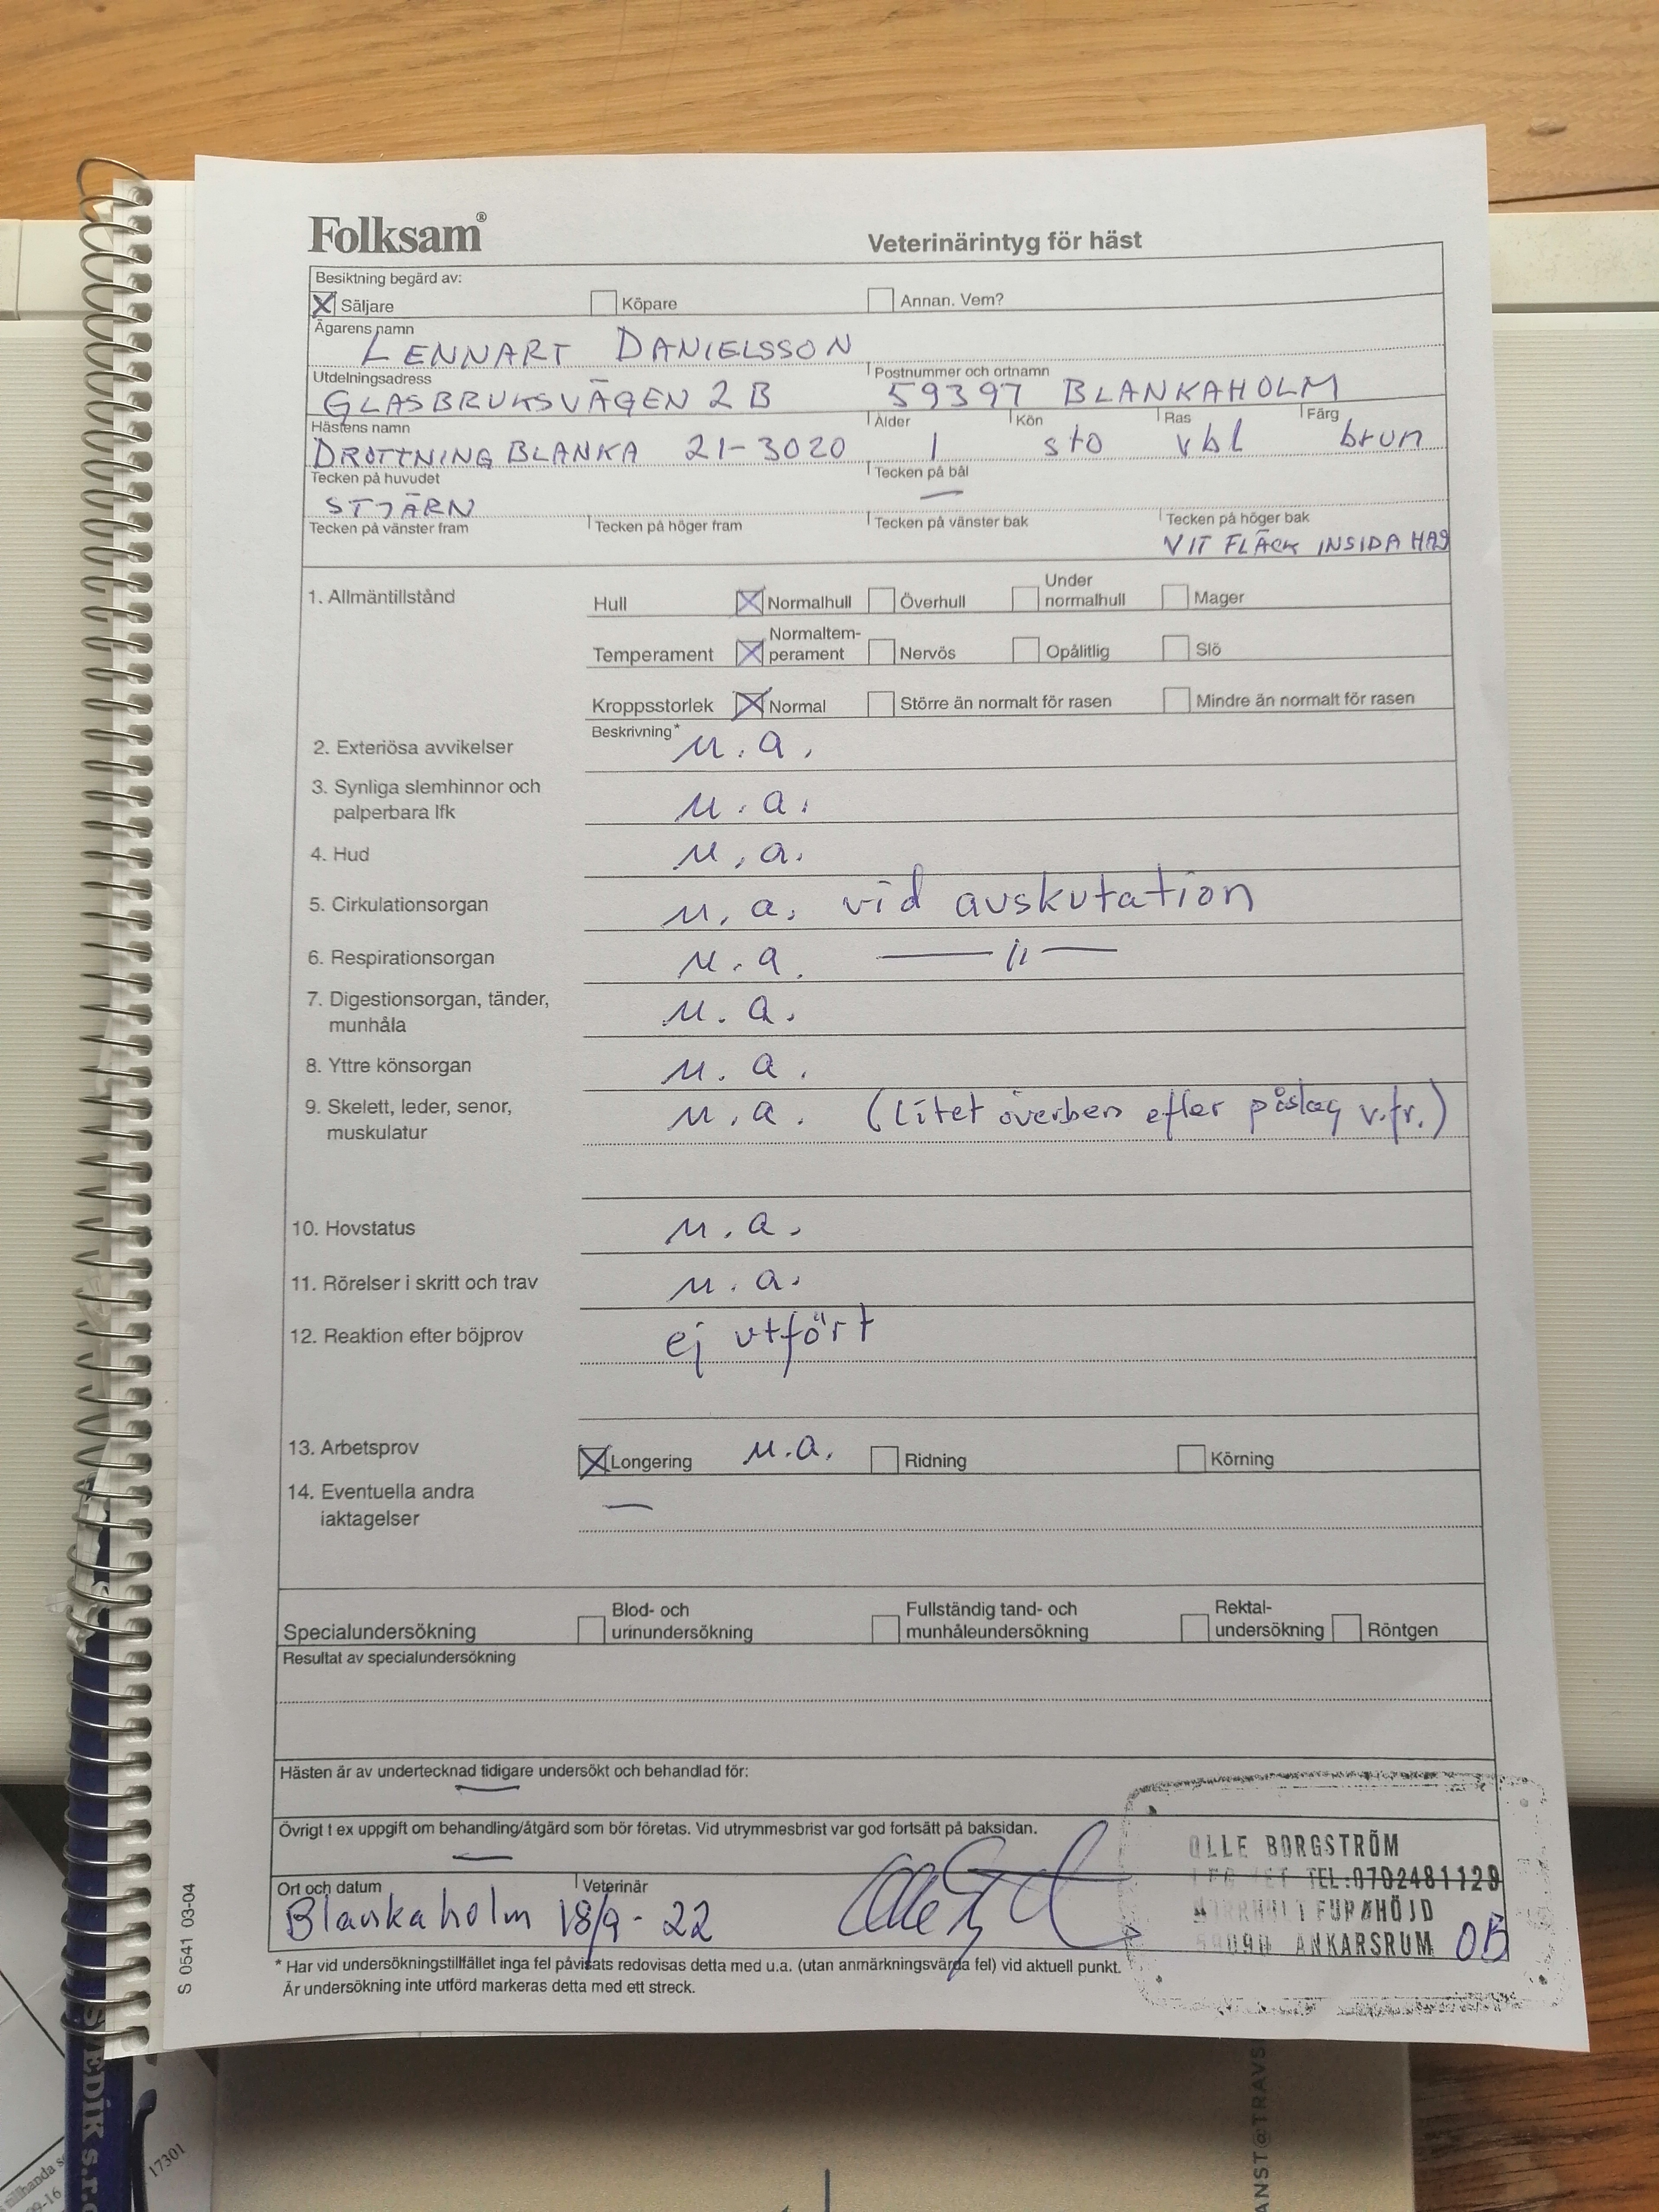 Folksam®
Veterinärintyg för häst
Besiktning begärd av:
X Säljare Köpare Annan. Vem?
Ägarens namn
LENNART DANIELSSON
Utdelningsadress Postnummer och ortnamn
GLASBRUKSVÄGEN 2B 59397 BLANKAHOLM
Hästens namn Ålder Kön Ras Färg
DROTTNING BLANKA 21-3020 1 sto vbl brun
Tecken på huvudet Tecken på bål
STJÄRN —
Tecken på vänster fram Tecken på höger fram Tecken på vänster bak Tecken på höger bak
VIT FLÄCK INSIDA HAS
1. Allmäntillstånd
Hull X Normalhull Överhull Under normalhull Mager
Temperament X Normaltem-
perament Nervös Opålitlig Slö
Kroppsstorlek X Normal Större än normalt för rasen Mindre än normalt för rasen
Beskrivning*
2. Exteriösa avvikelser u.a.
3. Synliga slemhinnor och
palperbara lfk u.a.
4. Hud u.a.
5. Cirkulationsorgan u.a. vid auskutation
6. Respirationsorgan u.a. — 11 —
7. Digestionsorgan, tänder,
munhåla u.a.
8. Yttre könsorgan u.a.
9. Skelett, leder, senor,
muskulatur u.a. (Litet överben efter påslag v.fr.)
10. Hovstatus u.a.
11. Rörelser i skritt och trav u.a.
12. Reaktion efter böjprov ej utfört
13. Arbetsprov X Longering u.a. Ridning Körning
14. Eventuella andra
iaktagelser —
Specialundersökning Blod- och
urinundersökning Fullständig tand- och
munhåleundersökning Rektal-
undersökning Röntgen
Resultat av specialundersökning
Hästen är av undertecknad tidigare undersökt och behandlad för:
—
Övrigt t ex uppgift om behandling/åtgärd som bör företas. Vid utrymmesbrist var god fortsätt på baksidan.
—
OLLE BORGSTRÖM
TEL:0702481129
FURUHÖJD
ANKARSRUM OB
Ort och datum Veterinär
Blankaholm 18/9-22
* Har vid undersökningstillfället inga fel påvisats redovisas detta med u.a. (utan anmärkningsvärda fel) vid aktuell punkt.
Är undersökning inte utförd markeras detta med ett streck.
S 0541 03-04
17301